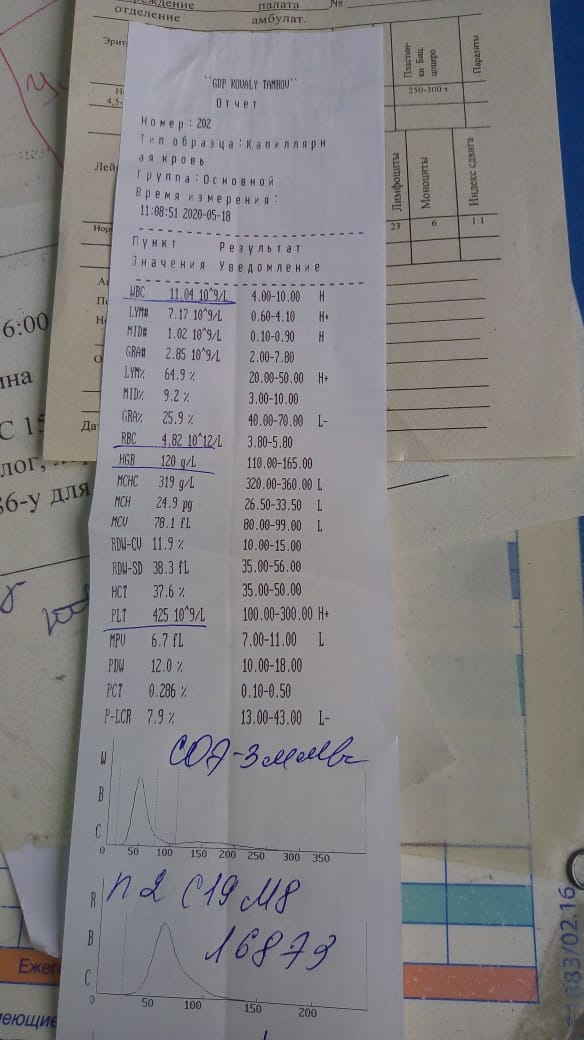 палата №
отделение амбулат.
Пластин-
ки Биц
цоцеро
Паразиты
250-300 т
Лимфоциты
Моноциты
Индекс сдвига
23 6 1.1
6:00
"GDP KOVALY TAMBOV"
Отчет
Номер:202
Тип образца:Капиллярн
ая кровь
Группа:Основной
Время измерения:
11:08:51 2020-05-18
Пункт Результат
Значения Уведомление
WBC 11.04 10^9/L 4.00-10.00 H
LYM# 7.17 10^9/L 0.60-4.10 H+
MID# 1.02 10^9/L 0.10-0.90 H
GRA# 2.85 10^9/L 2.00-7.80
LYM% 64.9 % 20.00-50.00 H+
MID% 9.2 % 3.00-10.00
GRA% 25.9 % 40.00-70.00 L-
RBC 4.82 10^12/L 3.80-5.80
HGB 120 g/L 110.00-165.00
MCHC 319 g/L 320.00-360.00 L
MCH 24.9 pg 26.50-33.50 L
MCV 78.1 fL 80.00-99.00 L
RDW-CV 11.9 % 10.00-15.00
RDW-SD 38.3 fL 35.00-56.00
HCT 37.6 % 35.00-50.00
PLT 425 10^9/L 100.00-300.00 H+
MPV 6.7 fL 7.00-11.00 L
PDW 12.0 % 10.00-18.00
PCT 0.286 % 0.10-0.50
P-LCR 7.9 % 13.00-43.00 L-
СОЭ-3мм/ч
W
B
C
0 50 100 150 200 250 300 350
П2 С19 М8
R
B
C
0 50 100 150 200
Ежег
383/02.16